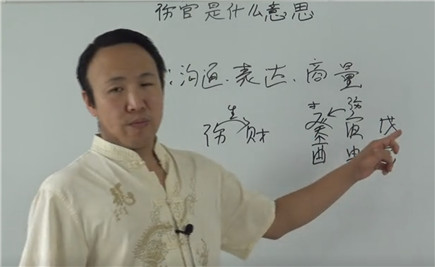 伤官是什么意思
：沟通、表达、商量
生
伤 财
才 伤
癸 戊
酉